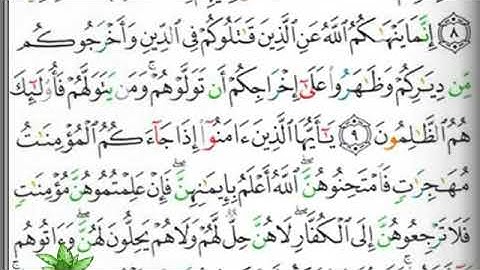 ٨ إِنَّمَا يَنْهَىٰكُمُ ٱللَّهُ عَنِ ٱلَّذِينَ قَٰتَلُوكُمْ فِى ٱلدِّينِ وَأَخْرَجُوكُم
مِّن دِيَٰرِكُمْ وَظَٰهَرُوا۟ عَلَىٰٓ إِخْرَاجِكُمْ أَن تَوَلَّوْهُمْ ۚ وَمَن يَتَوَلَّهُمْ فَأُو۟لَٰٓئِكَ
هُمُ ٱلظَّٰلِمُونَ ٩ يَٰٓأَيُّهَا ٱلَّذِينَ ءَامَنُوٓا۟ إِذَا جَآءَكُمُ ٱلْمُؤْمِنَٰتُ
مُهَٰجِرَٰتٍ فَٱمْتَحِنُوهُنَّ ۖ ٱللَّهُ أَعْلَمُ بِإِيمَٰنِهِنَّ ۖ فَإِنْ عَلِمْتُمُوهُنَّ مُؤْمِنَٰتٍ
فَلَا تَرْجِعُوهُنَّ إِلَى ٱلْكُفَّارِ ۖ لَا هُنَّ حِلٌّ لَّهُمْ وَلَا هُمْ يَحِلُّونَ لَهُنَّ ۖ وَءَاتُوهُم